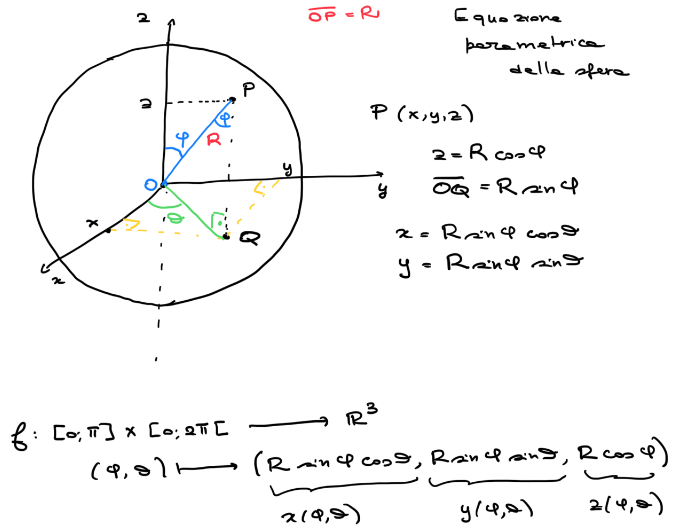 z
OP = R
Equazione
parametrica
della sfera
z
P
φ
φ
R
P (x,y,z)
z = R cosφ
O
y
y
OQ = R sinφ
θ
x
Q
x = R sinφ cosθ
y = R sinφ sinθ
x
f: [0;π] x [0;2π[ ⟶ ℝ³
(φ,θ) ⟼ (R sinφ cosθ, R sinφ sinθ, R cosφ)
x(φ,θ) y(φ,θ) z(φ,θ)